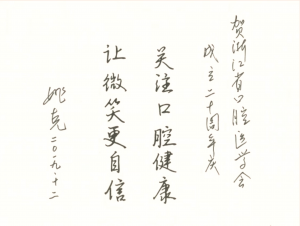 贺浙江省口腔医学会
成立二十周年庆
关注口腔健康
让微笑更自信
姚克二〇一九·十二